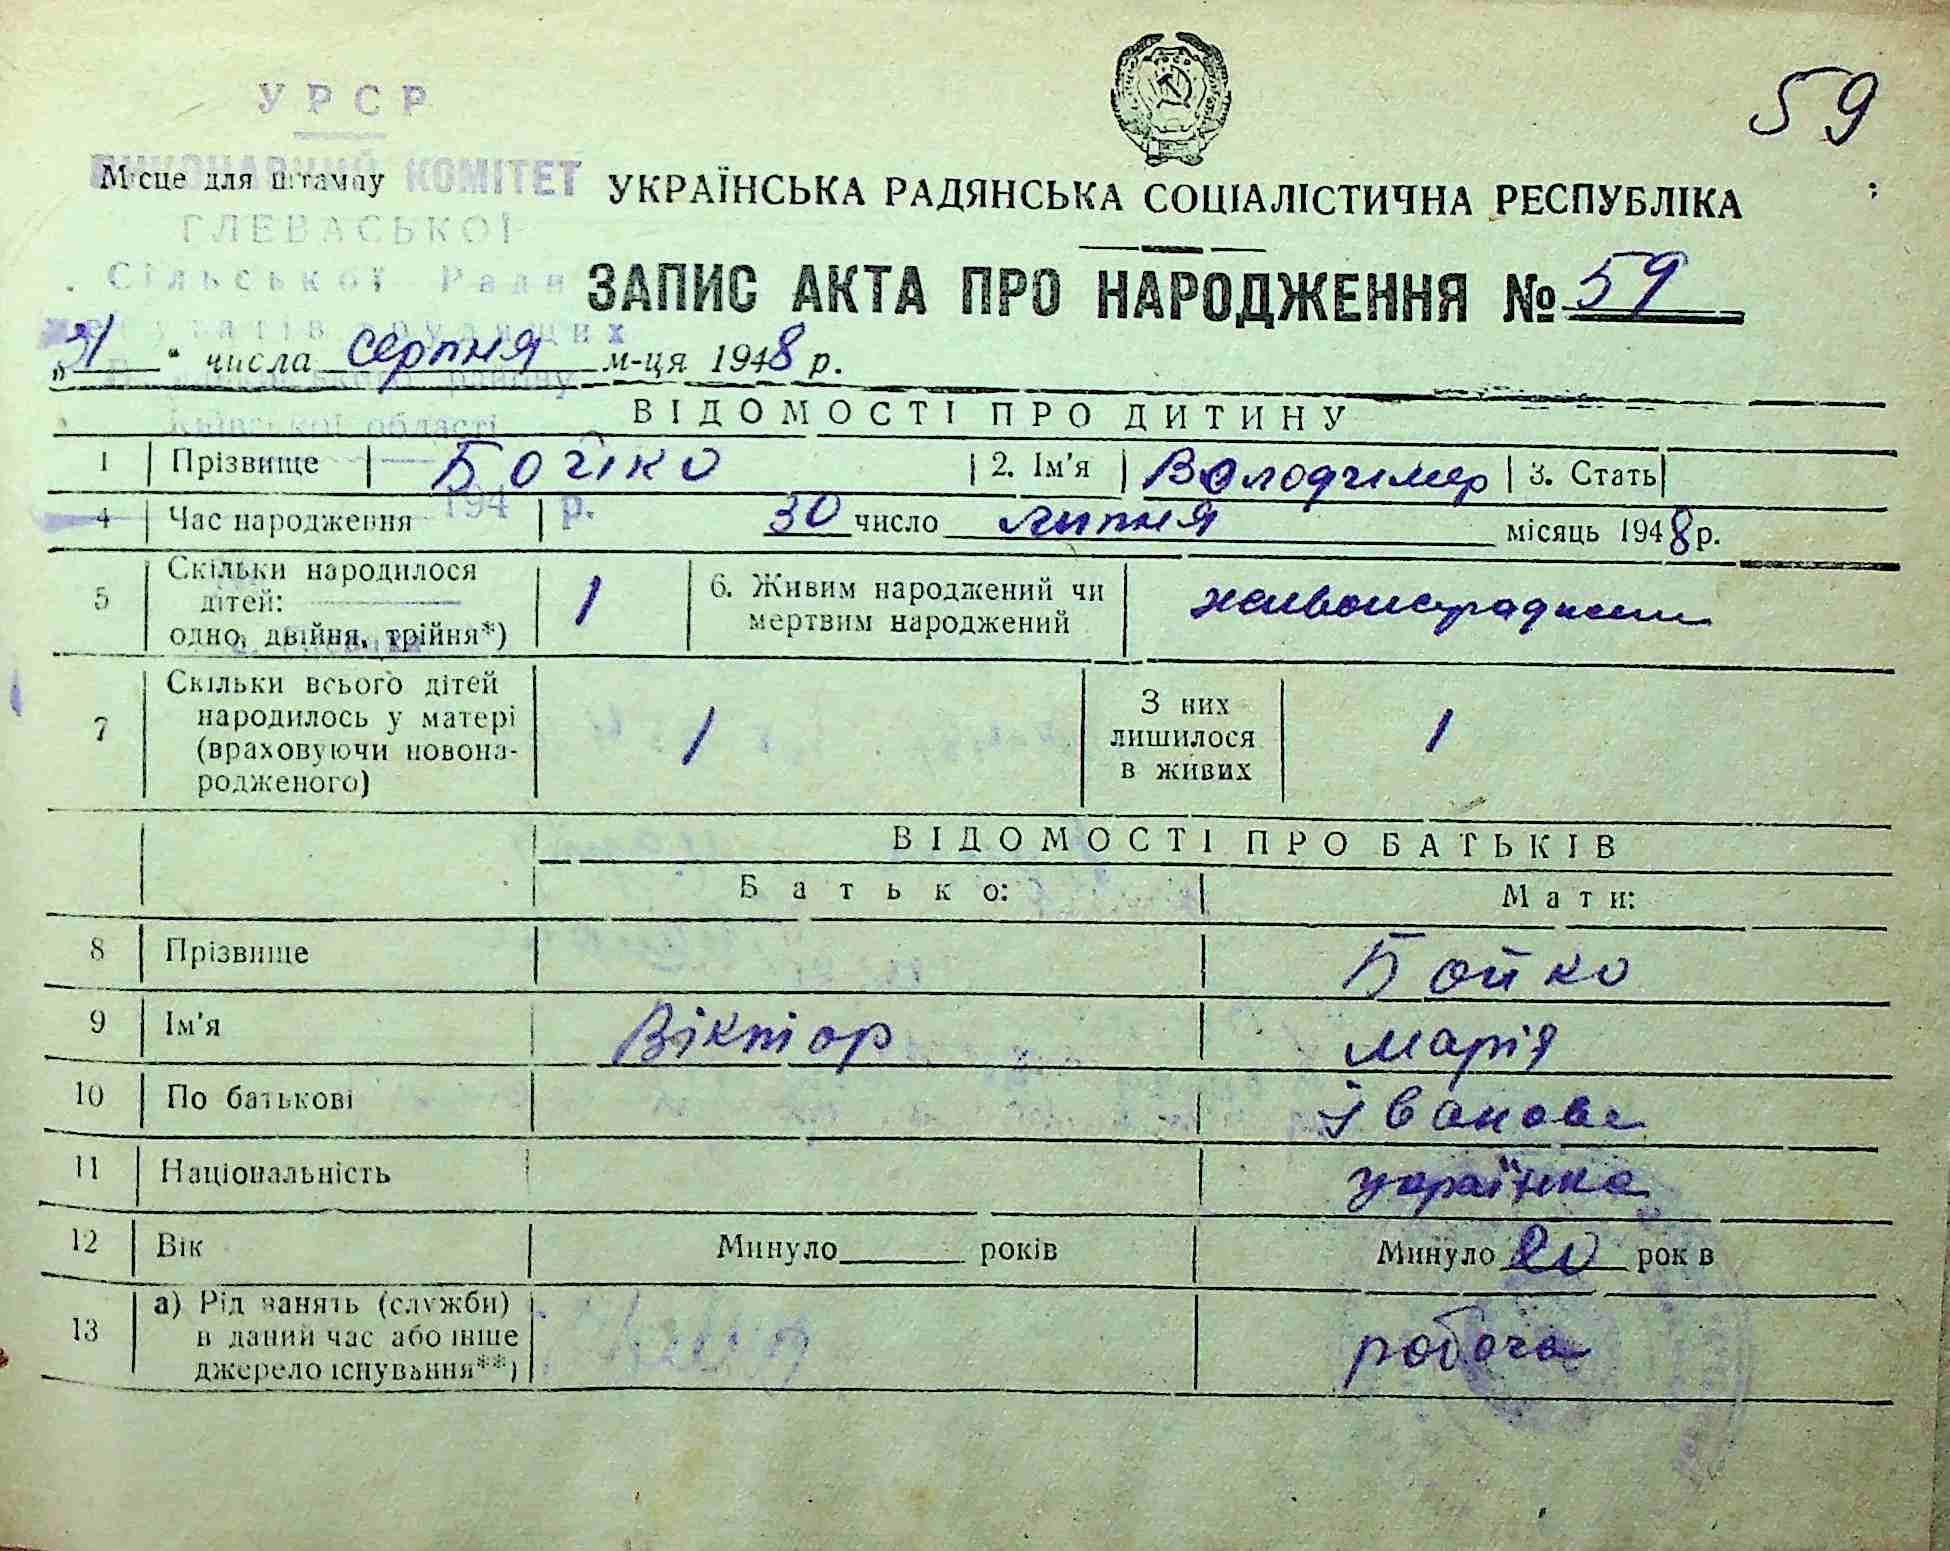 УРСР
59
ВИКОНАВЧИЙ КОМІТЕТ
Місце для штампу
УКРАЇНСЬКА РАДЯНСЬКА СОЦІАЛІСТИЧНА РЕСПУБЛІКА
ГЛЕВАСЬКОЇ
Сільської Ради
ЗАПИС АКТА ПРО НАРОДЖЕННЯ № 59
депутатів трудящих
„31" числа серпня м-ця 1948 р.
району
Київської області
ВІДОМОСТІ ПРО ДИТИНУ
1 Прізвище Бойко 2. Ім'я Володимер 3. Стать
194 р.
4 Час народження 30 число липня місяць 1948 р.
5 Скільки народилося дітей: одно, двійня, трійня*) 1 6. Живим народжений чи мертвим народжений
7 Скільки всього дітей народилось у матері (враховуючи новонародженого) 1 З них лишилося в живих 1
ВІДОМОСТІ ПРО БАТЬКІВ
Батько: Мати:
8 Прізвище Бойко
9 Ім'я Віктор Марія
10 По батькові Іванова
11 Національність українка
12 Вік Минуло років Минуло 20 рок в
13 а) Рід занять (служби) в даний час або інше джерело існування**) робоча